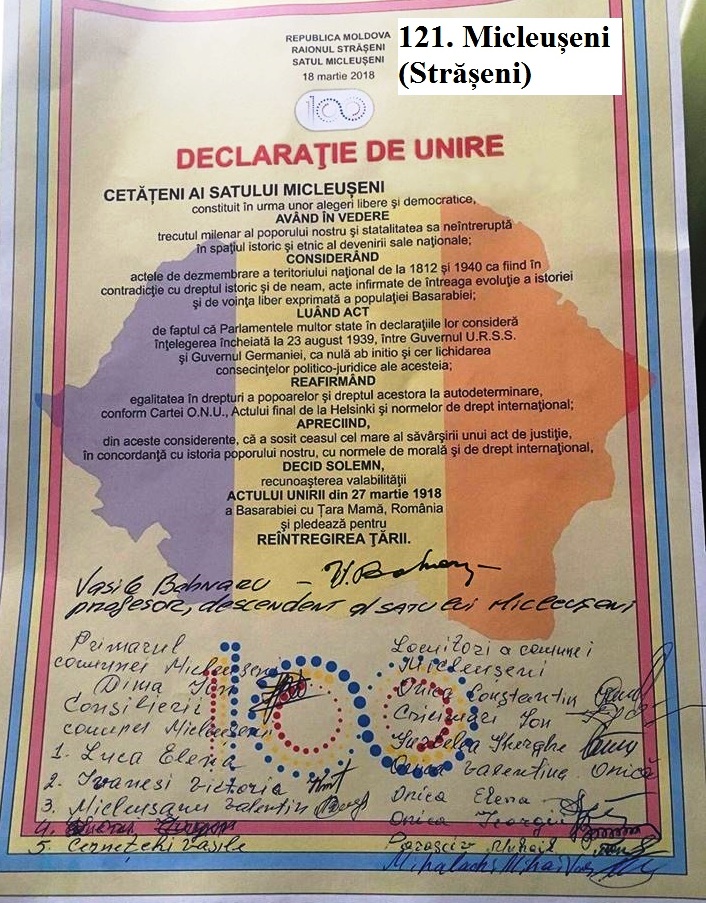 REPUBLICA MOLDOVA
RAIONUL STRĂȘENI
SATUL MICLEUȘENI
18 martie 2018
121. Micleușeni
(Strășeni)
100
DECLARAŢIE DE UNIRE
CETĂȚENI AI SATULUI MICLEUȘENI
constituit în urma unor alegeri libere și democratice,
AVÂND ÎN VEDERE
trecutul milenar al poporului nostru şi statalitatea sa neîntreruptă
în spaţiul istoric şi etnic al devenirii sale naţionale;
CONSIDERÂND
actele de dezmembrare a teritoriului naţional de la 1812 şi 1940 ca fiind în
contradicţie cu dreptul istoric şi de neam, acte infirmate de întreaga evoluţie a istoriei
şi de voinţa liber exprimată a populaţiei Basarabiei;
LUÂND ACT
de faptul că Parlamentele multor state în declaraţiile lor consideră
înţelegerea încheiată la 23 august 1939, între Guvernul U.R.S.S.
şi Guvernul Germaniei, ca nulă ab initio şi cer lichidarea
consecinţelor politico-juridice ale acesteia;
REAFIRMÂND
egalitatea în drepturi a popoarelor şi dreptul acestora la autodeterminare,
conform Cartei O.N.U., Actului final de la Helsinki şi normelor de drept internaţional;
APRECIIND,
din aceste considerente, că a sosit ceasul cel mare al săvârşirii unui act de justiţie,
în concordanţă cu istoria poporului nostru, cu normele de morală şi de drept internaţional,
DECID SOLEMN,
recunoaşterea valabilităţii
ACTULUI UNIRII din 27 martie 1918
a Basarabiei cu Ţara Mamă, România
şi pledează pentru
REÎNTREGIREA ŢĂRII.
Vasile Bahnaru –
profesor, descendent al satului Micleușeni
Primarul
comunei Micleușeni
Dima Ion
Consilierii
comunei Micleușeni
1. Luca Elena
2. Ivanesi Victoria
3. Micleușanu Valentin
4.
5. Cernețchi Vasile
100
Locuitori a comunei
Micleușeni
Onica Constantin
Ion
Gheorghe
Onica Valentina Onică
Onica Elena
Onica
Parasciv Mihail
Mihalachi Mihai